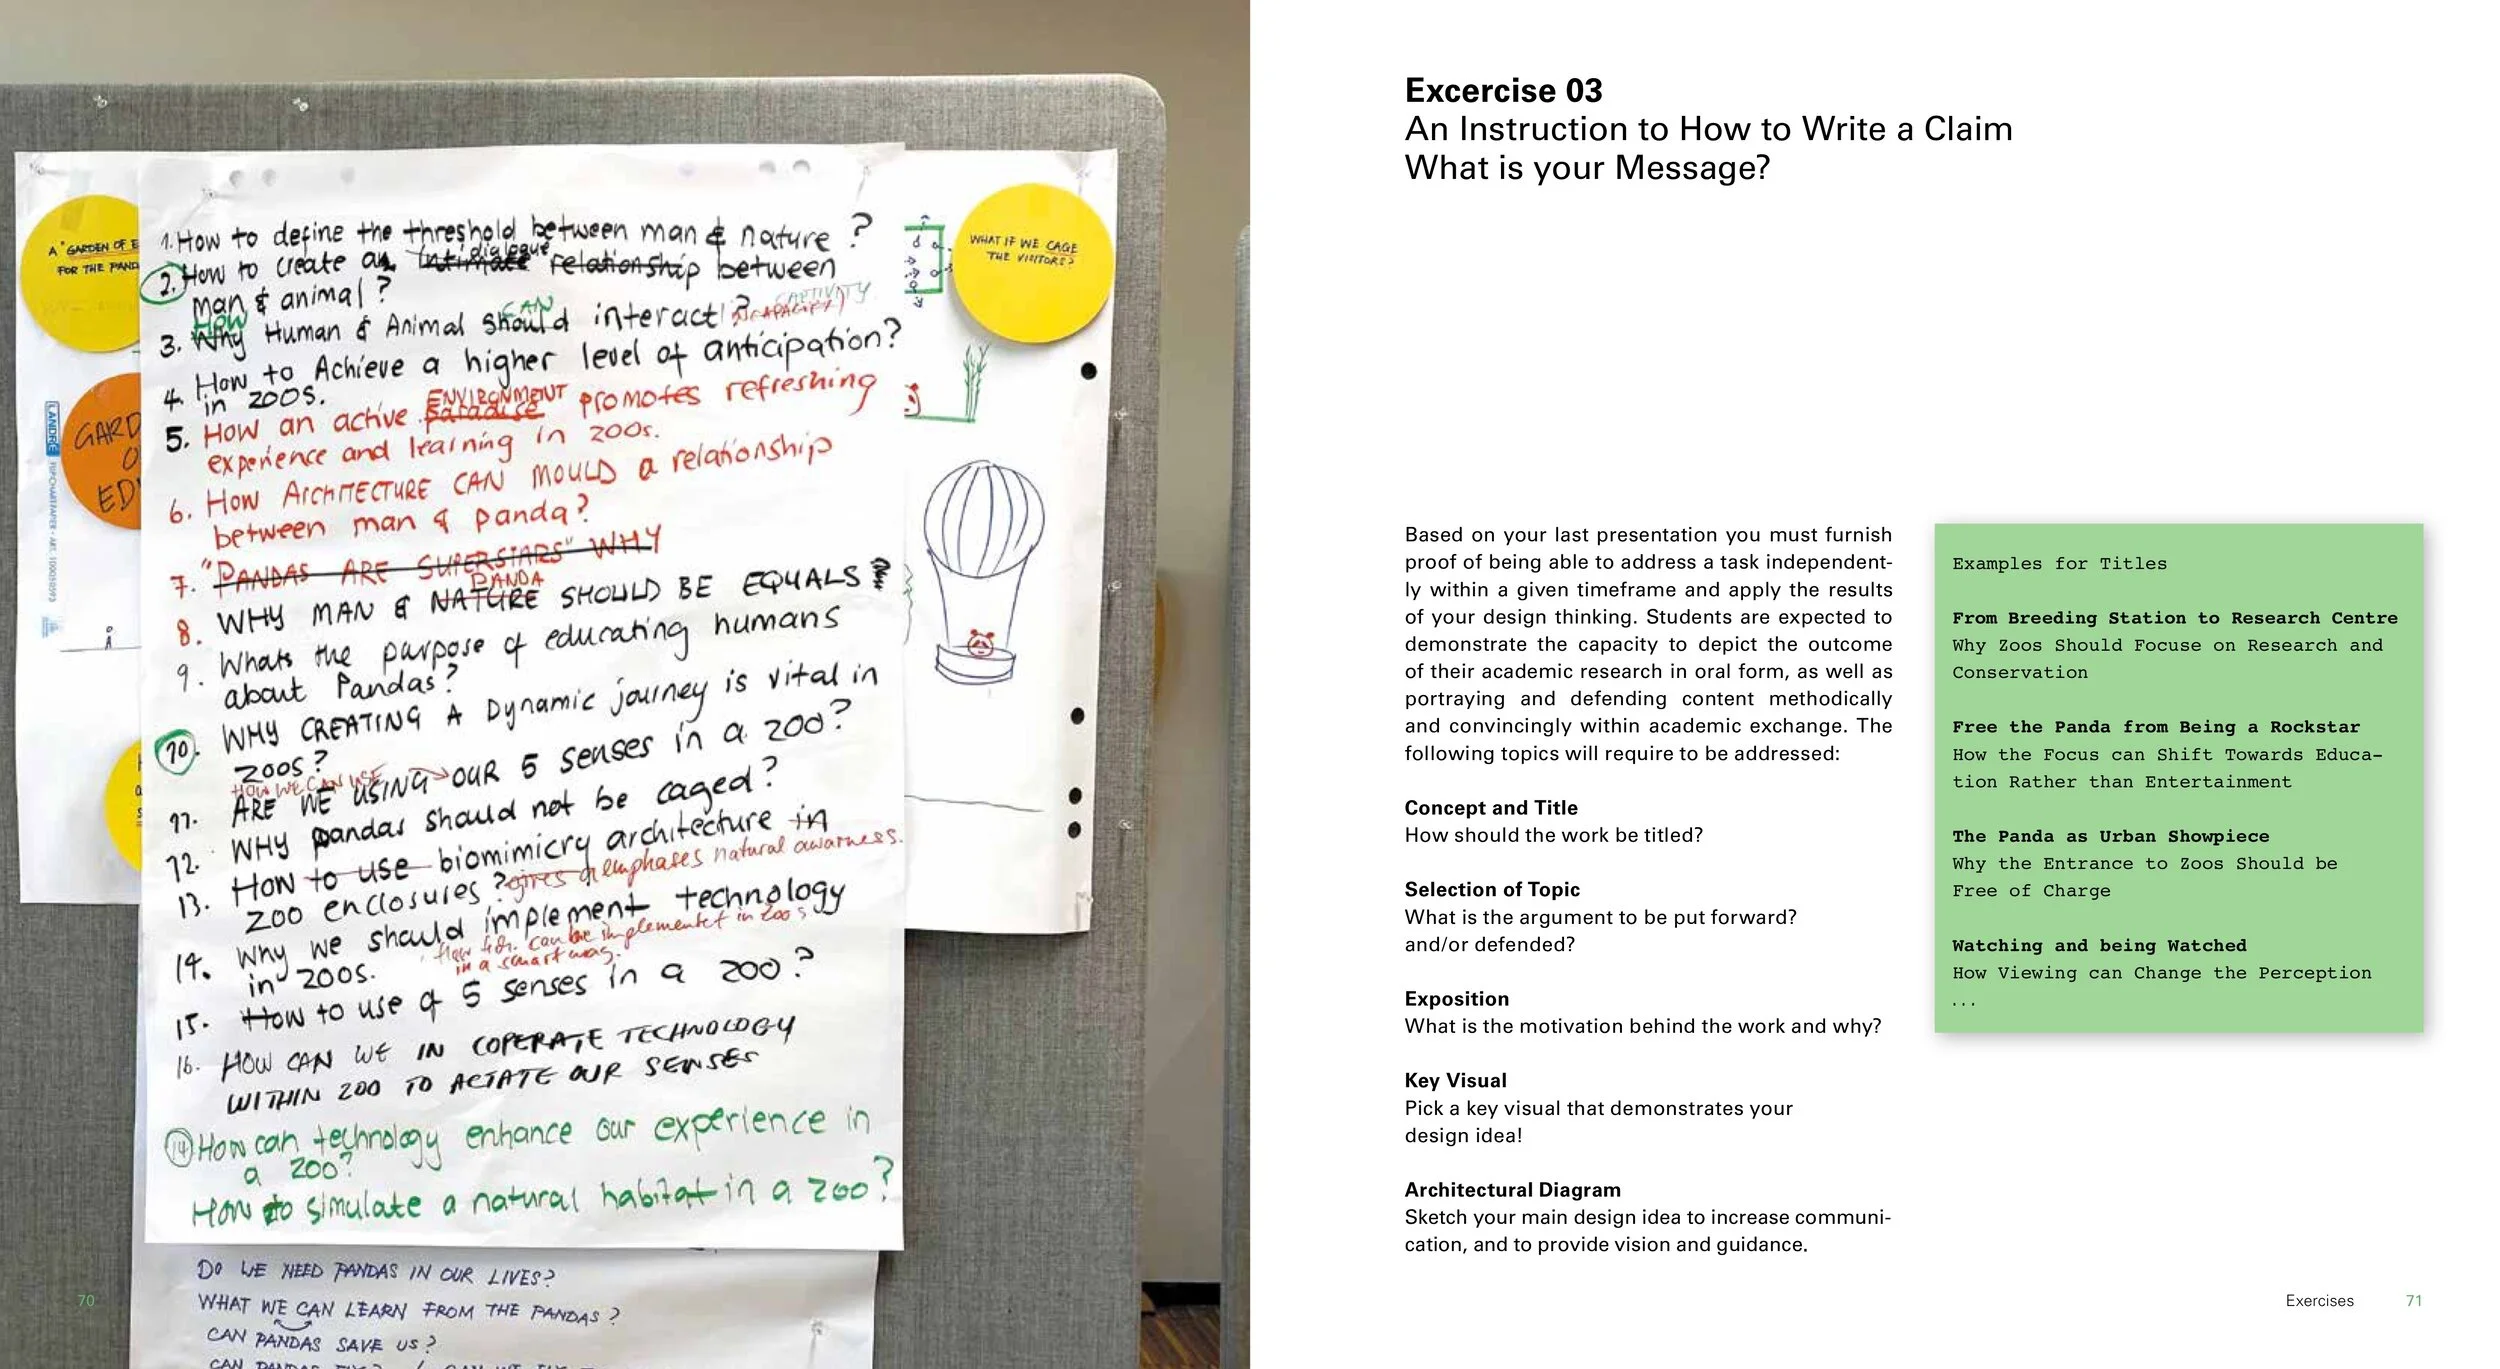 A "GARDEN OF E
FOR THE PAND
GARD
O
EDI
LANDRÉ
WHAT IF WE CAGE
THE VISITORS?
1. How to define the threshold between man & nature ?
dialogue
2. How to create an intimate relationship between
man & animal ?
HOW CAN CAPTIVITY
3. Why Human & Animal should interact ?
4. How to Achieve a higher level of anticipation?
in zoos.
ENVIRONMENT
5. How an active paradise promotes refreshing
experience and learning in zoos.
6. How ARCHITECTURE CAN MOULD a relationship
between man & panda?
7. "PANDAS ARE SUPERSTARS" WHY
PANDA
8. WHY MAN & NATURE SHOULD BE EQUALS ?
9. Whats the purpose of educating humans
about Pandas?
10. WHY CREATING A Dynamic journey is vital in
ZOOS?
HOW WE CAN USE
11. ARE WE USING OUR 5 senses in a zoo?
12. WHY pandas should not be caged?
13. How to use biomimicry architecture in
zoo enclosures ? gives emphases natural awarness.
14. Why we should implement technology
in zoos.
can be implementet in zoos
in a smart way.
15. How to use of 5 senses in a zoo ?
16. HOW CAN WE IN COPERATE TECHNOLOGY
WITHIN ZOO TO ACTATE OUR SENSES
14 How can technology enhance our experience in
a zoo?
How to simulate a natural habitat in a zoo?
DO WE NEED PANDAS IN OUR LIVES?
WHAT WE CAN LEARN FROM THE PANDAS ?
CAN PANDAS SAVE US ?
70
Excercise 03
An Instruction to How to Write a Claim
What is your Message?
Based on your last presentation you must furnish
proof of being able to address a task independent-
ly within a given timeframe and apply the results
of your design thinking. Students are expected to
demonstrate the capacity to depict the outcome
of their academic research in oral form, as well as
portraying and defending content methodically
and convincingly within academic exchange. The
following topics will require to be addressed:
Concept and Title
How should the work be titled?
Selection of Topic
What is the argument to be put forward?
and/or defended?
Exposition
What is the motivation behind the work and why?
Key Visual
Pick a key visual that demonstrates your
design idea!
Architectural Diagram
Sketch your main design idea to increase communi-
cation, and to provide vision and guidance.
Examples for Titles
From Breeding Station to Research Centre
Why Zoos Should Focuse on Research and
Conservation
Free the Panda from Being a Rockstar
How the Focus can Shift Towards Educa-
tion Rather than Entertainment
The Panda as Urban Showpiece
Why the Entrance to Zoos Should be
Free of Charge
Watching and being Watched
How Viewing can Change the Perception
...
Exercises 71